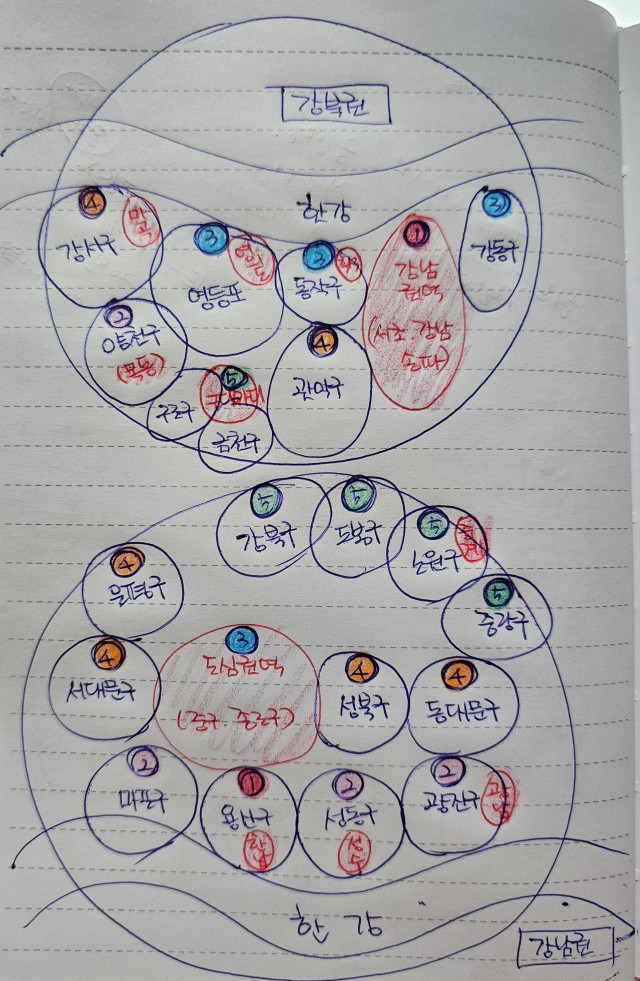 강북권
한강
④
강서구
마곡
③
영등포
여의도
③
동작구
흑석
①
강남
권역
(서초·강남
송파)
③
강동구
②
양천구
(목동)
⑤
구로구
금천구
④
관악구
⑤
강북구
⑤
도봉구
⑤
노원구
중계
⑤
중랑구
④
은평구
④
서대문구
③
도심권역
(중구·종로구)
④
성북구
④
동대문구
②
마포구
①
용산구
한남
②
성동구
성수
②
광진구
광장
한강
강남권